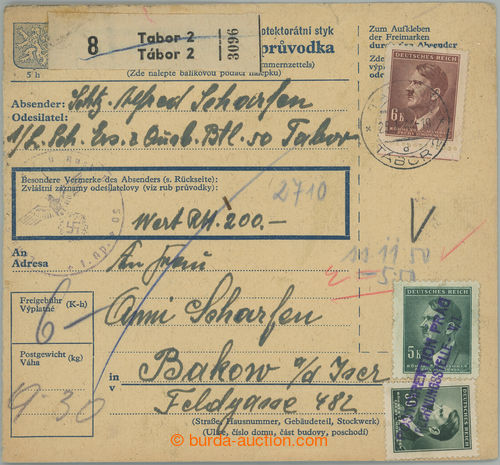 8
Tabor 2
Tábor 2
3096
otektorátní styk
průvodka
5 h
(Zde nalepte balíkovou podací nálepku)
mmernzettels)
Zum Aufkleben
der Freimarken
durch den Absender
DEUTSCHES REICH
6K
TABOR 2
Absender: Schtz. Alfred Scharfen
Odesílatel:
1/L. Sch. Ers. z Ausb. Btl. 50 Tabor
Besondere Vermerke des Absenders (s. Rückseite):
Zvláštní záznamy odesílatelovy (viz rub průvodky):
2710
Wert RM. 200.—
An
Adresa
An Frau
11 11 50
5.50
Freigebühr (K-h)
Výplatné
6—
Anni Scharfen
DEUTSCHES REICH
5K
Postgewicht (kg)
Váha
9.30
in
v
Bakow a/d Iser
Feldgasse 482
DEUTSCHES REICH
(Straße, Hausnummer, Gebäudeteil, Stockwerk)
(Ulice, číslo domu, část budovy, poschodí)
© burda-auction.com